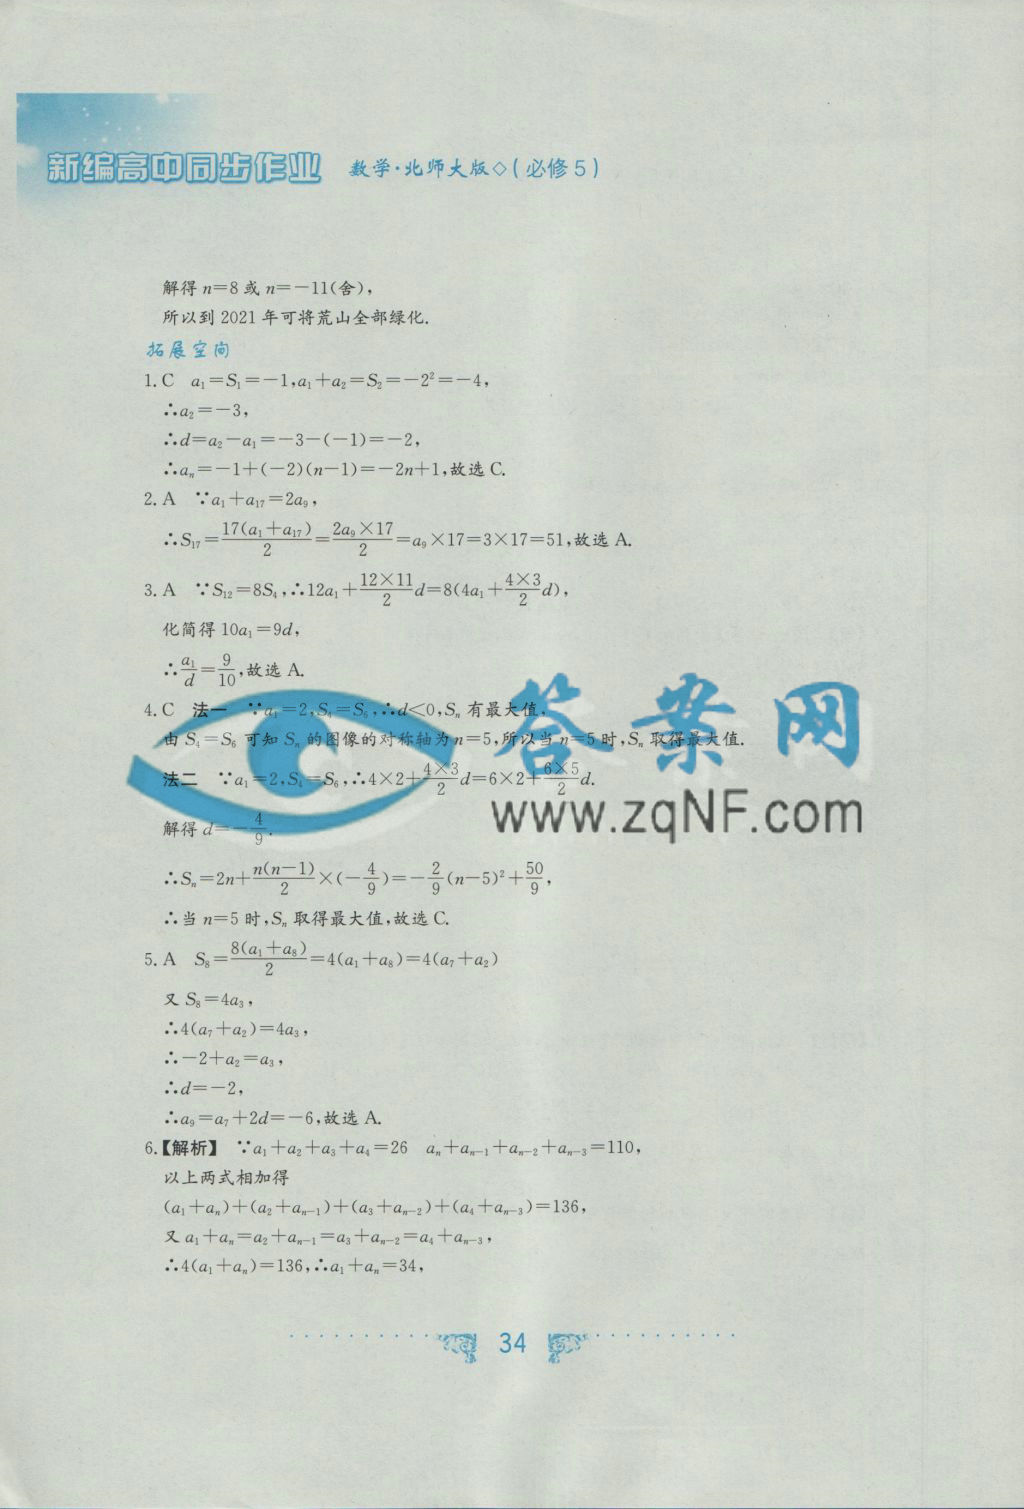 新编高中同步作业 数学·北师大版◇(必修5)
解得n=8或n=-11(舍),
所以到2021年可将荒山全部绿化.
拓展空间
1. C a₁=S₁=-1,a₁+a₂=S₂=-2²=-4,
∴a₂=-3,
∴d=a₂-a₁=-3-(-1)=-2,
∴aₙ=-1+(-2)(n-1)=-2n+1,故选C.
2. A ∵a₁+a₁₇=2a₉,
∴S₁₇=17(a₁+a₁₇)/2=2a₉×17/2=a₉×17=3×17=51,故选A.
3. A ∵S₁₂=8S₄,∴12a₁+12×11/2d=8(4a₁+4×3/2d),
化简得10a₁=9d,
∴a₁/d=9/10,故选A.
4. C 法一 ∵a₁=2,S₄=S₆,∴d<0,Sₙ有最大值,
由S₄=S₆可知Sₙ的图像的对称轴为n=5,所以当n=5时,Sₙ取得最大值.
法二 ∵a₁=2,S₄=S₆,∴4×2+4×3/2d=6×2+6×5/2d.
解得d=-4/9.
∴Sₙ=2n+n(n-1)/2×(-4/9)=-2/9(n-5)²+50/9,
∴当n=5时,Sₙ取得最大值,故选C.
5. A S₈=8(a₁+a₈)/2=4(a₁+a₈)=4(a₇+a₂)
又S₈=4a₃,
∴4(a₇+a₂)=4a₃,
∴-2+a₂=a₃,
∴d=-2,
∴a₉=a₇+2d=-6,故选A.
6.【解析】 ∵a₁+a₂+a₃+a₄=26 aₙ+aₙ₋₁+aₙ₋₂+aₙ₋₃=110,
以上两式相加得
(a₁+aₙ)+(a₂+aₙ₋₁)+(a₃+aₙ₋₂)+(a₄+aₙ₋₃)=136,
又a₁+aₙ=a₂+aₙ₋₁=a₃+aₙ₋₂=a₄+aₙ₋₃,
∴4(a₁+aₙ)=136,∴a₁+aₙ=34,
34
答案网
www.zqNF.com